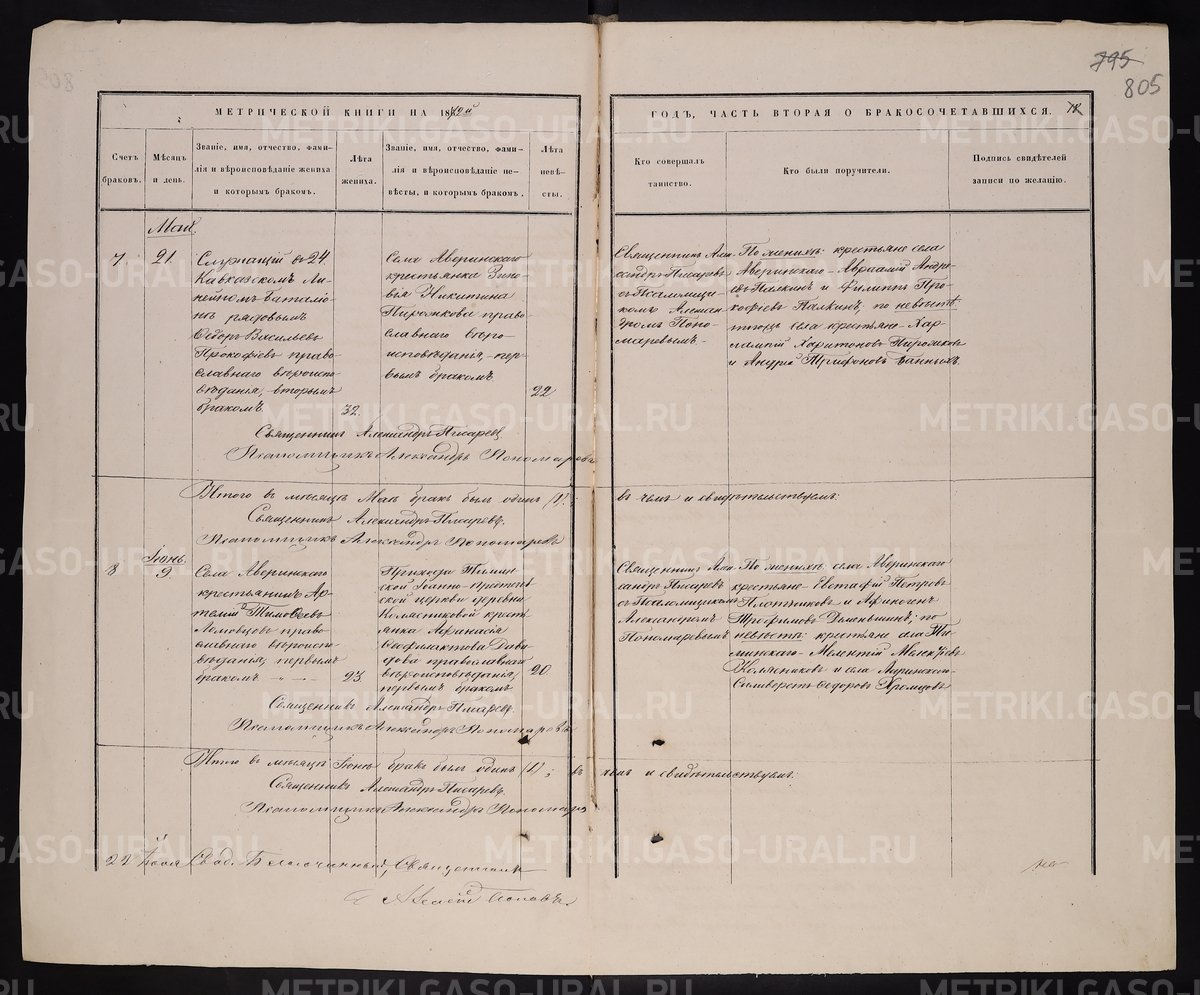 795
805
МЕТРИЧЕСКОЙ КНИГИ НА 1872й
ГОДЪ, ЧАСТЬ ВТОРАЯ О БРАКОСОЧЕТАВШИХСЯ.
Счетъ браковъ.
Мѣсяцъ и день.
Званіе, имя, отчество, фами-
лія и вѣроисповѣданіе жениха
и которымъ бракомъ.
Лѣта
жениха.
Званіе, имя, отчество, фами-
лія и вѣроисповѣданіе не-
вѣсты, и которымъ бракомъ.
Лѣта
невѣ-
сты.
Кто совершалъ
таинство.
Кто были поручители.
Подпись свидѣтелей
записи по желанію.
Май.
7
21.
Служащій въ 24
Кавказскомъ Ли-
нейномъ баталіо-
нѣ рядовымъ
Ѳедоръ Васильевъ
Прокофіевъ право-
славнаго вѣроиспо-
вѣданія, вторымъ
бракомъ
32.
Села Аверинскаго
крестьянка Зино-
вія Никитина
Пирожкова право-
славнаго вѣро-
исповѣданія, пер-
вымъ бракомъ.
22
Священникъ Але-
ксандръ Писаревъ
съ Псаломщи-
комъ Алексан-
дромъ Поно-
маревымъ.
По женихѣ: крестьяне села
Аверинскаго - Авраамій Андре-
евъ Палкинъ и Филиппъ Про-
кофіевъ Палкинъ; по невѣстѣ:
тогожъ села крестьяне - Хар-
лампій Харитоновъ Пирожковъ
и Андрей Трифоновъ Банныхъ.
Священникъ Александръ Писаревъ
Псаломщикъ Александръ Пономаревъ
Итого въ мѣсяцѣ Маѣ бракъ былъ одинъ (1);
въ чемъ и свидѣтельствуемъ:
Священникъ Александръ Писаревъ.
Псаломщикъ Александръ Пономаревъ
Іюнь.
8
9.
Села Аверинскаго
крестьянинъ Ар-
темій Тимоѳеевъ
Ломовцовъ право-
славнаго вѣроиспо-
вѣданія; первымъ
бракомъ
23.
Прихода Тимин-
ской Іоанно-Предтечен-
ской церкви деревни
Колясниковой кресть-
янка Афанасія
Ѳеофилактова Давы-
дова православнаго
вѣроисповѣданія,
первымъ бракомъ
20.
Священникъ Але-
ксандръ Писаревъ
съ Псаломщикомъ
Александромъ
Пономаревымъ
По женихѣ: села Аверинскаго
крестьяне - Евстафій Петровъ
Плотниковъ и Африкогенъ
Трофимовъ Деменьшинъ; по
невѣстѣ: крестьяне села Ти-
минскаго - Мелентій Алексѣевъ
Колясниковъ и села Аверинскаго
Силиверстъ Ѳедоровъ Хромцовъ
Священникъ Александръ Писаревъ.
Псаломщикъ Александръ Пономаревъ
Итого въ мѣсяцѣ Іюнѣ бракъ былъ одинъ (1);
въ чемъ и свидѣтельствуемъ:
Священникъ Александръ Писаревъ.
Псаломщикъ Александръ Пономаревъ
22 Іюля Свид. Благочинный, Священникъ
Алексій Поповъ.
METRIKI.GASO-URAL.RU